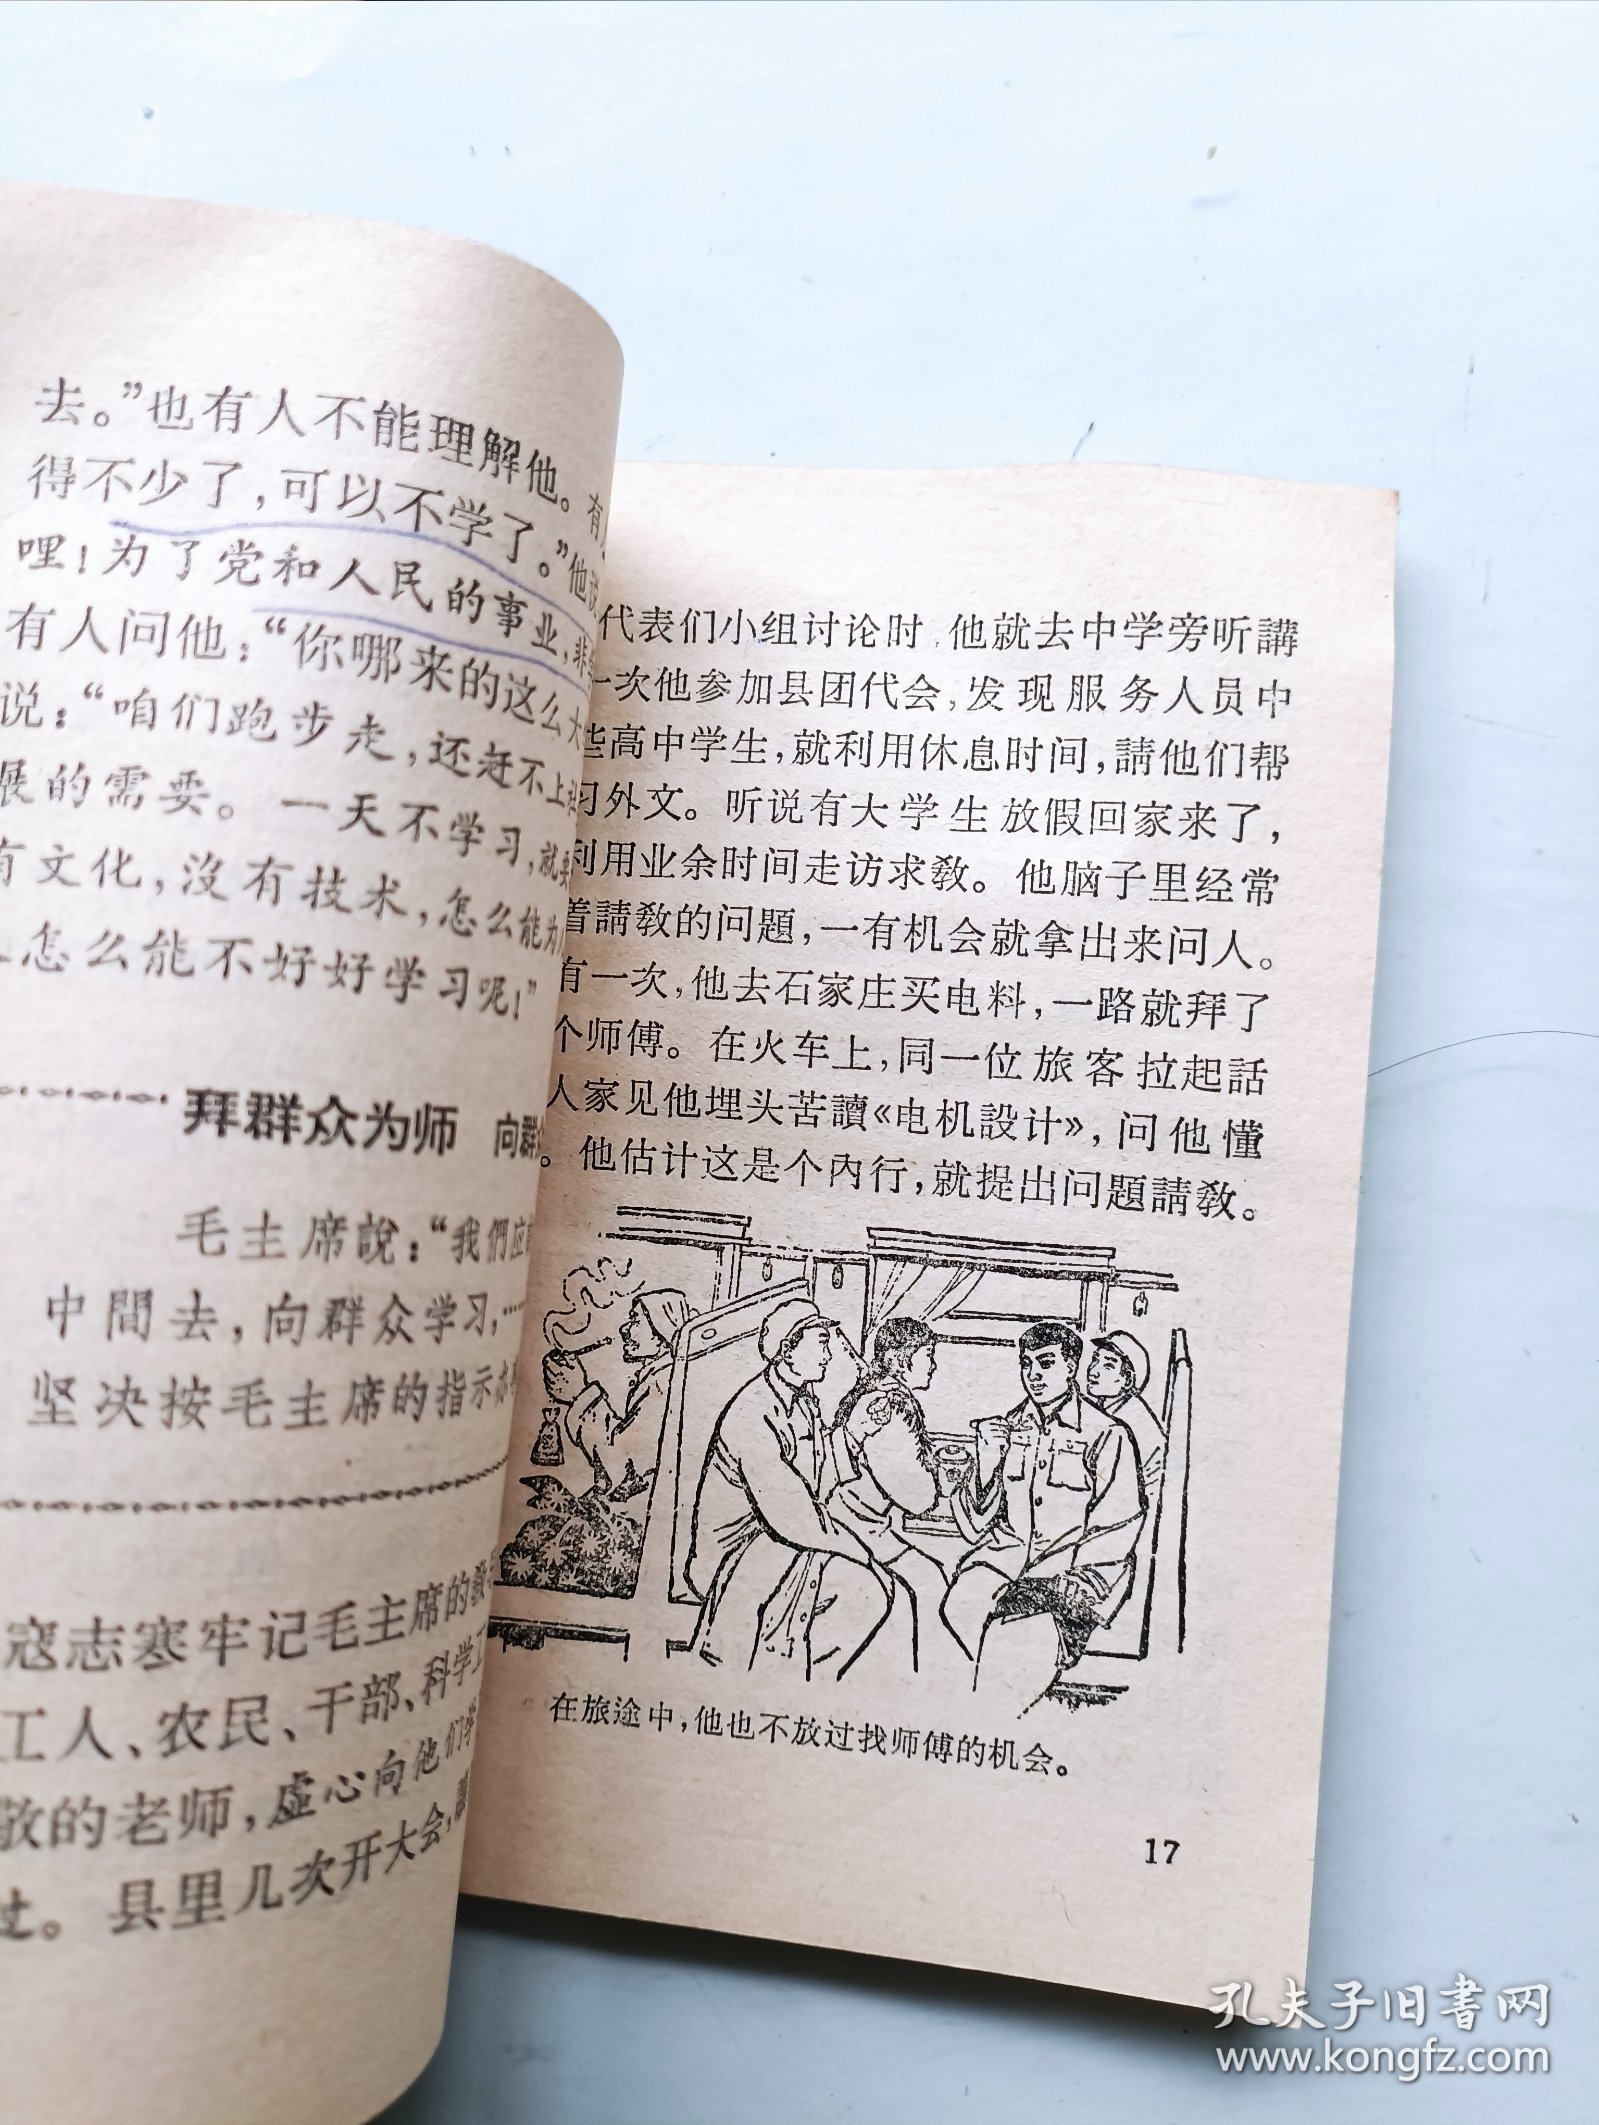 去。”也有人不能理解他。有
得不少了，可以不学了。”他说
哩！为了党和人民的事业，非
有人问他：“你哪来的这么大
说：“咱们跑步走，还赶不上社
展的需要。一天不学习，就要
有文化，沒有技术，怎么能为
怎么能不好好学习呢！”
拜群众为师 向群众
毛主席說：“我們应
中間去，向群众学习，……
坚决按毛主席的指示办
寇志寒牢记毛主席的教
工人、农民、干部、科学工
敬的老师，虚心向他们学
过。县里几次开大会，
代表们小组讨论时，他就去中学旁听講
一次他参加县团代会，发现服务人员中
些高中学生，就利用休息时间，請他们帮
习外文。听说有大学生放假回家来了，
利用业余时间走访求教。他脑子里经常
着請教的问題，一有机会就拿出来问人。
有一次，他去石家庄买电料，一路就拜了
个师傅。在火车上，同一位旅客拉起話
人家见他埋头苦讀《电机設计》，问他懂
。他估计这是个內行，就提出问題請教。
在旅途中，他也不放过找师傅的机会。
17
孔夫子旧书网
www.kongfz.com